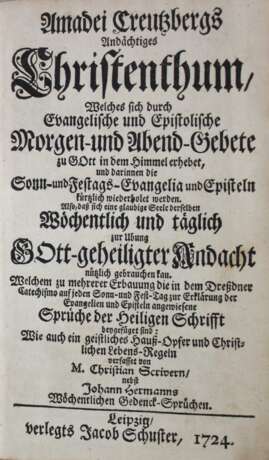 Amadei Creutzbergs
Andächtiges
Christenthum/
Welches sich durch
Evangelische und Epistolische
Morgen-und Abend-Gebete
zu GOtt in dem Himmel erhebet,
und darinnen die
Sonn-und Festags-Evangelia und Episteln
kürtzlich wiederholet werden.
Also, daß sich eine glaubige Seele derselben
Wöchentlich und täglich
zur Ubung
GOtt-geheiligter Andacht
nützlich gebrauchen kan.
Welchem zu mehrerer Erbauung die in dem Dreßdner
Catechismo auf jeden Sonn-und Fest-Tag zur Erklärung der
Evangelien und Episteln angewiesene
Sprüche der Heiligen Schrifft
beygefüget sind;
Wie auch ein geistliches Hauß-Opfer und Christ-
lichen Lebens-Regeln
verfasset von
M. Christian Scrivern,
nebst
Johann Hermanns
Wöchentlichen Gedenck-Sprüchen.
Leipzig/
verlegts Jacob Schuster, 1724.